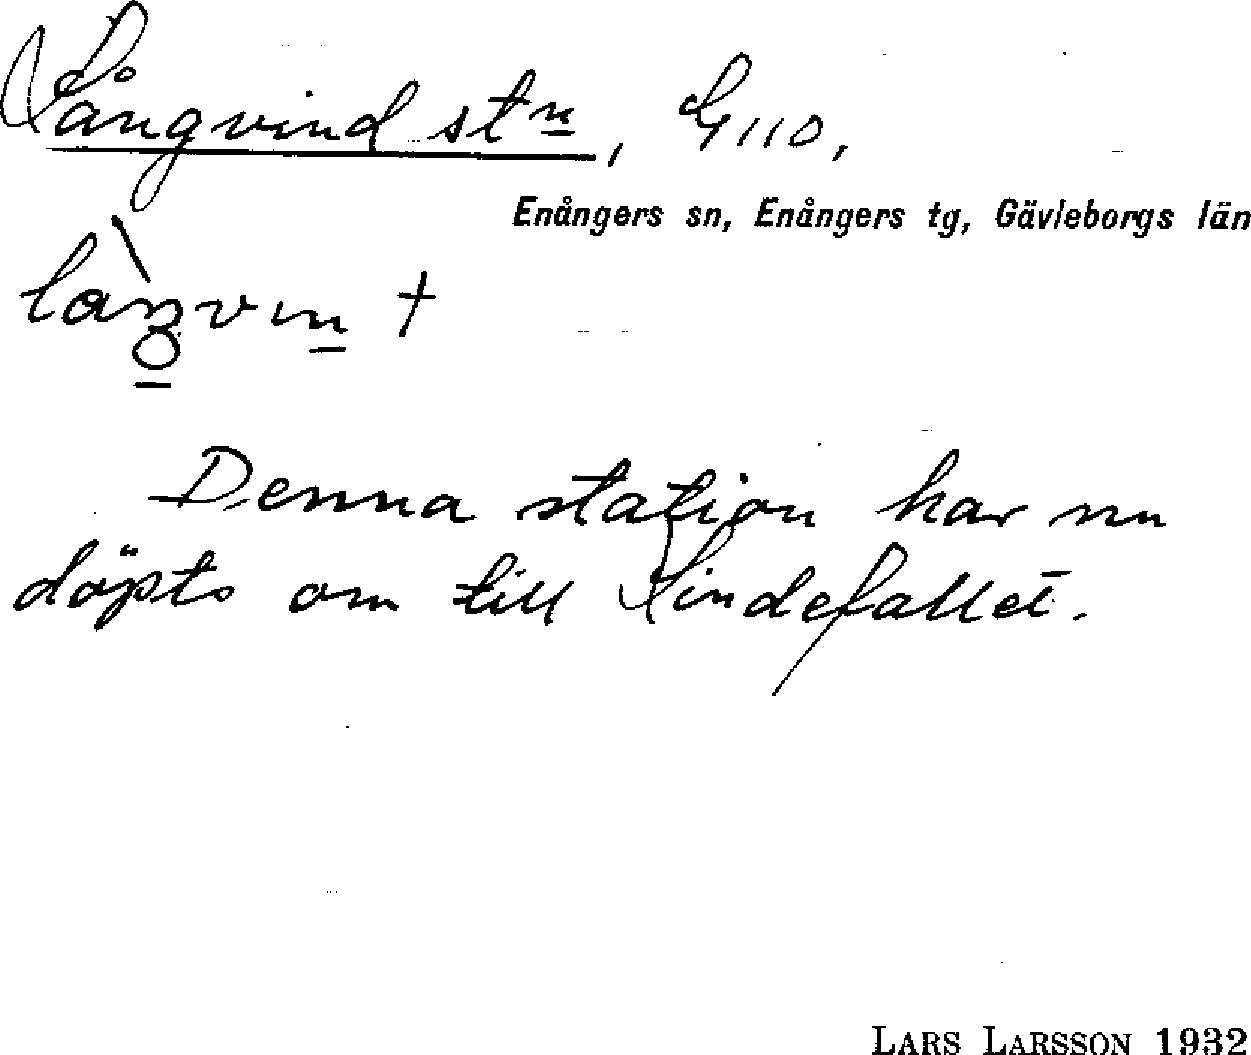 Långvind stn, G 110,
Enångers sn, Enångers tg, Gävleborgs län
Denna station har nu
döpts om till Lindefallet.
LARS LARSSON 1932